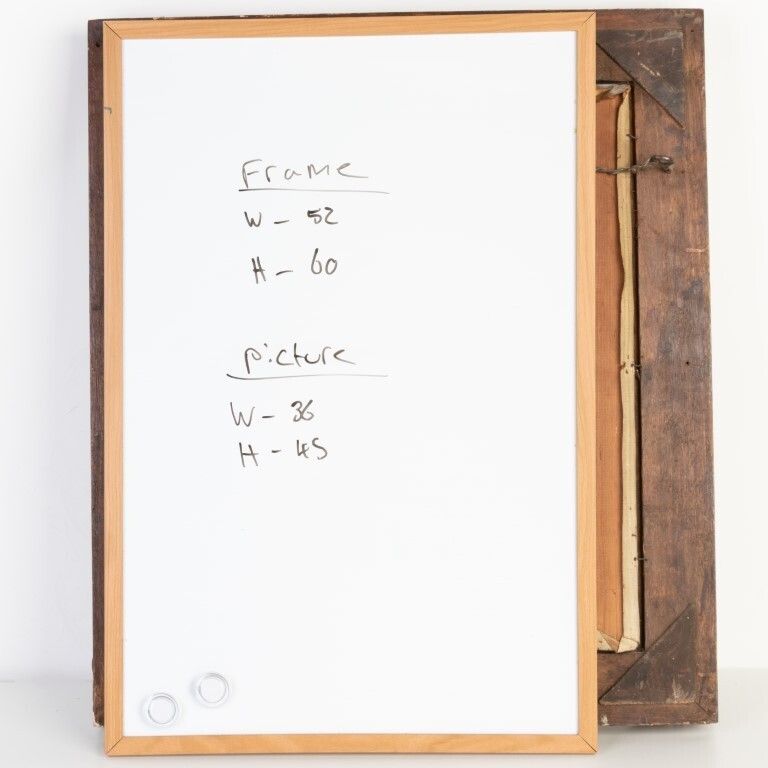 Frame
W - 52
H - 60
picture
W - 36
H - 45